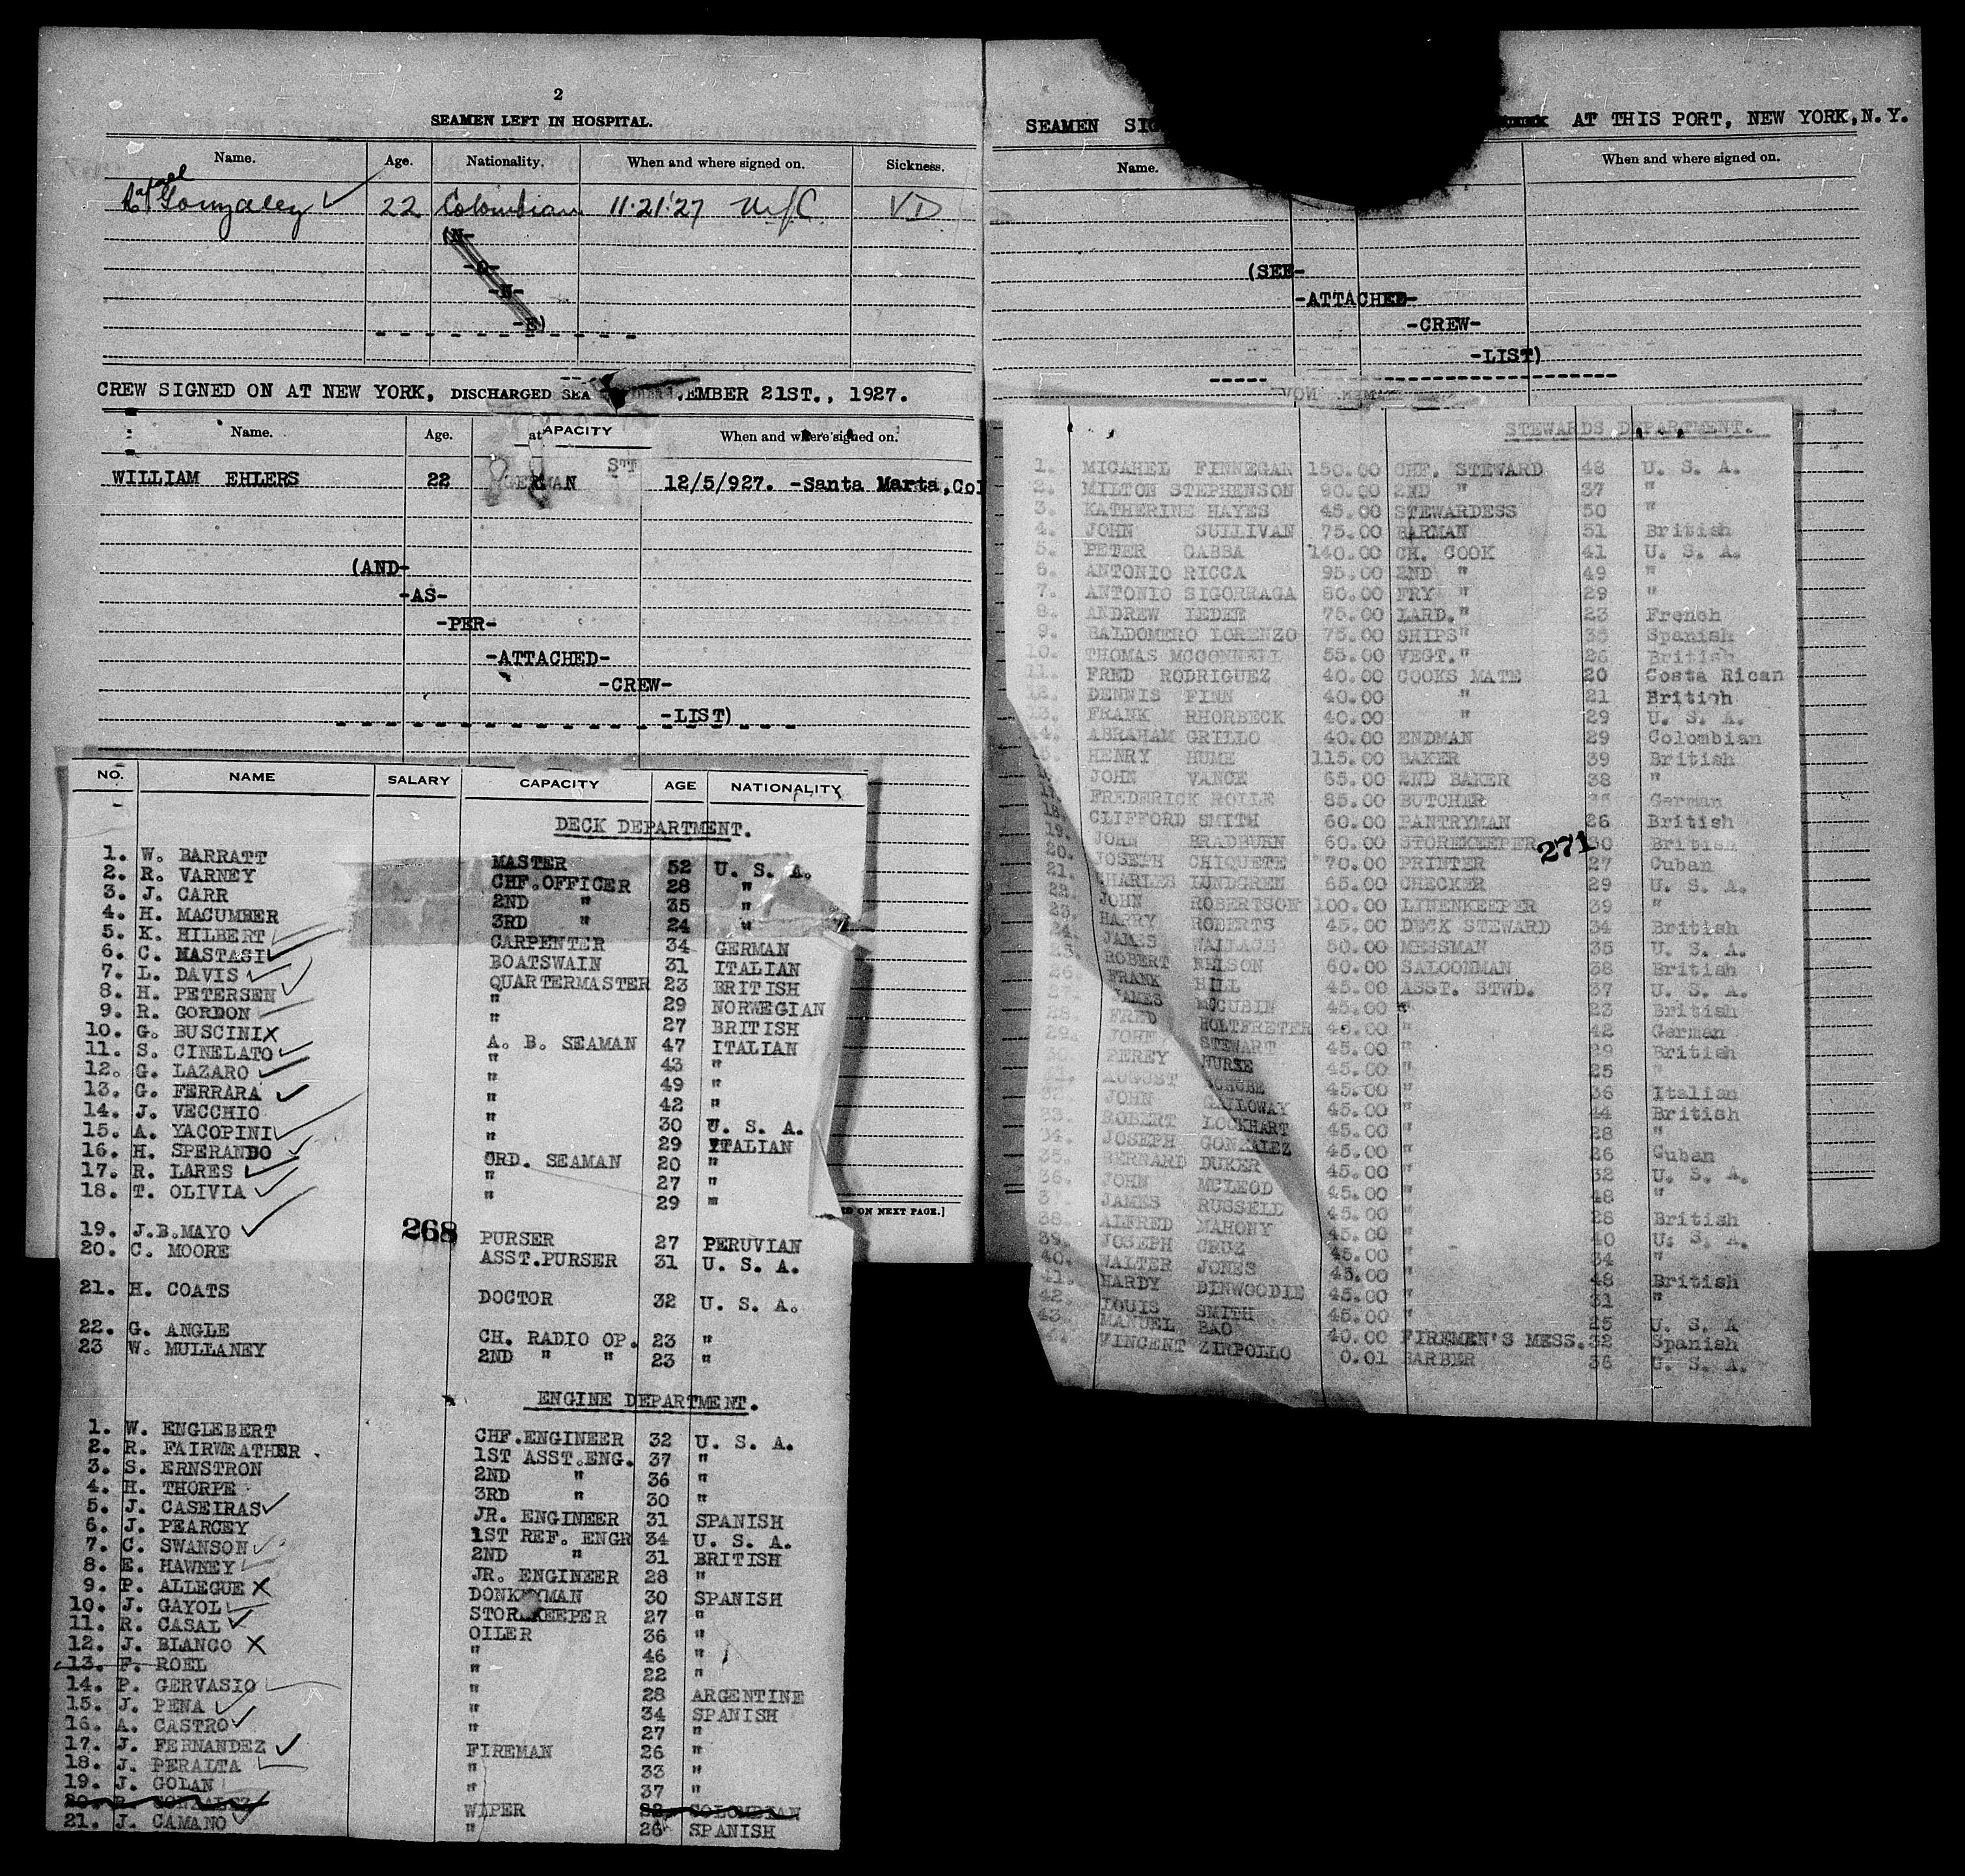 2
SEAMEN LEFT IN HOSPITAL.
Name. Age. Nationality. When and where signed on. Sickness.
Rafael Gonzalez 22 Colombian 11-21-27 N/C VD
(N-
-O-
-N-
-E)
CREW SIGNED ON AT NEW YORK, DISCHARGED SEA EMBER 21ST., 1927.
Name. Age. at APACITY When and where signed on.
WILLIAM EHLERS 22 GERMAN 12/5/927. -Santa Marta,Col
(AND-
-AS-
-PER-
-ATTACHED-
-CREW-
-LIST)
NO. NAME SALARY CAPACITY AGE NATIONALITY
DECK DEPARTMENT.
1. W. BARRATT MASTER 52 U. S. A.
2. R. VARNEY CHF.OFFICER 28 "
3. J. CARR 2ND " 35 "
4. H. MACUMBER 3RD " 24 "
5. K. HILBERT CARPENTER 34 GERMAN
6. C. MASTASI BOATSWAIN 31 ITALIAN
7. L. DAVIS QUARTERMASTER 23 BRITISH
8. H. PETERSEN " 29 NORWEGIAN
9. R. GORDON " 27 BRITISH
10. G. BUSCINI A. B. SEAMAN 47 ITALIAN
11. S. CINELATO " 43 "
12. G. LAZARO " 49 "
13. G. FERRARA " 42 "
14. J. VECCHIO " 30 U. S. A.
15. A. YACOPINI " 29 ITALIAN
16. H. SPERANDO ORD. SEAMAN 20 "
17. R. LARES " 27 "
18. T. OLIVIA " 29 "
19. J.B.MAYO 268 PURSER 27 PERUVIAN
20. C. MOORE ASST.PURSER 31 U. S. A.
21. H. COATS DOCTOR 32 U. S. A.
22. G. ANGLE CH. RADIO OP. 23 "
23 W. MULLANEY 2ND " " 23 "
ENGINE DEPARTMENT.
1. W. ENGLEBERT CHF.ENGINEER 32 U. S. A.
2. R. FAIRWEATHER 1ST ASST.ENG. 37 "
3. S. ERNSTRON 2ND " 36 "
4. H. THORPE 3RD " 30 "
5. J. CASEIRAS JR. ENGINEER 31 SPANISH
6. J. PEARCEY 1ST REF. ENGR 34 U. S. A.
7. C. SWANSON 2ND " 31 BRITISH
8. E. HAWNEY JR. ENGINEER 28 "
9. P. ALLEGUE DONKEYMAN 30 SPANISH
10. J. GAYOL STOREKEEPER 27 "
11. R. CASAL OILER 36 "
12. J. BLANCO " 46 "
13. F. ROEL " 22 "
14. P. GERVASIO " 28 ARGENTINE
15. J. PENA " 34 SPANISH
16. A. CASTRO " 27 "
17. J. FERNANDEZ FIREMAN 26 "
18. J. PERALTA " 33 "
19. J. GOLAN " 37 "
20. R. GONZALEZ WIPER 22 COLOMBIAN
21. J. CAMANO " 26 SPANISH
D ON NEXT PAGE.]
SEAMEN SIG AT THIS PORT, NEW YORK,N.Y.
Name. When and where signed on.
(SEE-
-ATTACHED-
-CREW-
-LIST)
STEWARDS DEPARTMENT.
1. MICAHEL FINNEGAN 150.00 CHF. STEWARD 48 U. S. A.
2. MILTON STEPHENSON 90.00 2ND " 37 "
3. KATHERINE HAYES 45.00 STEWARDESS 50 "
4. JOHN SULLIVAN 75.00 BARMAN 51 British
5. PETER GABBA 140.00 CH. COOK 41 U. S. A.
6. ANTONIO RICCA 95.00 2ND " 49 "
7. ANTONIO SIGORRAGA 80.00 FRY " 29 "
8. ANDREW LEDEE 75.00 LARD." 23 French
9. BALDOMERO LORENZO 75.00 SHIPS" 35 Spanish
10. THOMAS MCCONNELL 55.00 VEGT." 26 British
11. FRED RODRIGUEZ 40.00 COOKS MATE 20 Costa Rican
12. DENNIS FINN 40.00 " 21 British
13. FRANK RHORBECK 40.00 " 29 U. S. A.
14. ABRAHAM GRILLO 40.00 ENDMAN 29 Colombian
15. HENRY HUME 115.00 BAKER 39 British
JOHN VANCE 65.00 2ND BAKER 38 "
17. FREDERICK ROLLE 85.00 BUTCHER German
18. CLIFFORD SMITH 60.00 PANTRYMAN 26 British
19. JOHN BRADBURN 60.00 STOREKEEPER 271 30 British
20. JOSEPH CHIQUETE 70.00 PRINTER 27 Cuban
21. CHARLES LUNDGREN 65.00 CHECKER 29 U. S. A.
22. JOHN ROBERTSON 100.00 LINENKEEPER 39 "
23. HARRY ROBERTS 45.00 DECK STEWARD 34 British
24. JAMES WALLACE 50.00 MESSMAN 35 U. S. A.
25. ROBERT NELSON 60.00 SALOONMAN 38 British
26. FRANK HILL 45.00 ASST. STWD. 37 U. S. A.
27. JAMES MCCUBIN 45.00 " 23 British
28. FRED HOLTFRETER 45.00 " 42 German
29. JOHN STEWART 45.00 " 29 British
30. PEREY NURSE 45.00 " 25 "
31. AUGUST SCHOBE 45.00 " 36 Italian
32. JOHN GALLOWAY 45.00 " 44 British
33. ROBERT LOCKHART 45.00 " 28 "
34. JOSEPH GONZALEZ 45.00 " 26 Cuban
35. BERNARD DUKER 45.00 " 32 U. S. A.
36. JOHN MCLEOD 45.00 " 48 "
37. JAMES RUSSELL 45.00 " 28 British
38. ALFRED MAHONY 45.00 " 40 U. S. A.
39. JOSEPH CRUZ 45.00 " 34 "
40. WALTER JONES 45.00 " 48 British
41. HARDY DINWOODIE 45.00 " 31 "
42. LOUIS SMITH 45.00 " 25 U. S. A
43. MANUEL BAO 40.00 FIREMEN'S MESS. 32 Spanish
VINCENT ZIRPOLLO 0.01 BARBER 36 U. S. A.